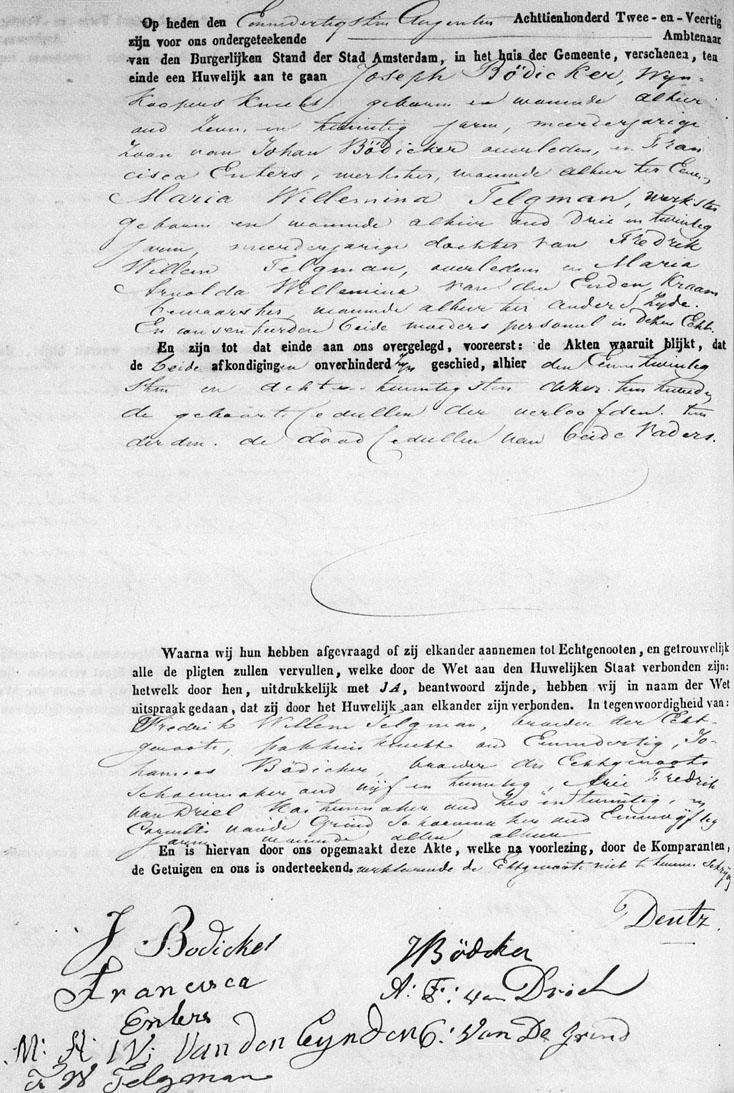 Op heden den Eenendertigsten Augustus Achttienhonderd Twee-en-Veertig
zijn voor ons ondergeteekende Ambtenaar
van den Burgerlijken Stand der Stad Amsterdam, in het huis der Gemeente, verschenen, ten
einde een Huwelijk aan te gaan Joseph Bödicker, Wyn-
koopers knecht, geboren en wonende alhier
oud Zeven en twintig jaren, meerderjarige
Zoon van Johan Bödicker overleden, en Fran
cisca Enters, werkster, wonende alhier ter Eene,
Maria Willemina Telgman, werkster
geboren en wonende alhier oud Drie en twintig
jaren, meerderjarige dochter van Fredrik
Willem Telgman, overleden en Maria
Arnolda Willemina van den Enden, Kraam
bewaarster, wonende alhier ter andere Zyde.
En consenteerden beide moeders personeel in deken Echt.
En zijn tot dat einde aan ons overgelegd, vooreerst: de Akten waaruit blijkt, dat
de beide afkondigingen onverhinderd zyn geschied, alhier den Eenentwintig
sten en achtentwintigsten dezer. ten tweede,
de geboorte Cedullen der verloofden. ten
derden. de dood Cedullen van beide Vaders.
Waarna wij hun hebben afgevraagd of zij elkander aannemen tot Echtgenooten, en getrouwelijk
alle de pligten zullen vervullen, welke door de Wet aan den Huwelijken Staat verbonden zijn:
hetwelk door hen, uitdrukkelijk met JA, beantwoord zijnde, hebben wij in naam der Wet
uitspraak gedaan, dat zij door het Huwelijk aan elkander zijn verbonden. In tegenwoordigheid van:
Fredrik Willem Telgman, broeder der Echt
genoote, pakhuisknecht oud Eenendertig, Jo-
hannes Bödicker, broeder des Echtgenoots
Schoenmaker oud vijf en twintig, Arie Fredrik
van Driel oud zes en twintig, en
Cornelis van de Grind Schoenmaker oud Eenenvijftig
jaren wonende allen alhier
En is hiervan door ons opgemaakt deze Akte, welke na voorlezing, door de Komparanten,
de Getuigen en ons is onderteekend. verklarende de Echtgenoote niet te kunnen Schrijven
Deutz.
J Bodicker JBödcker
Francisca A: F: van Driel
Enters
M: A: W: Van den Eynden C: Van De Grind
F W Telgman